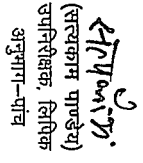 (सत्यकाम पाण्डेय)
उपनिरीक्षक, लिपिक
अनुभाग-पांच